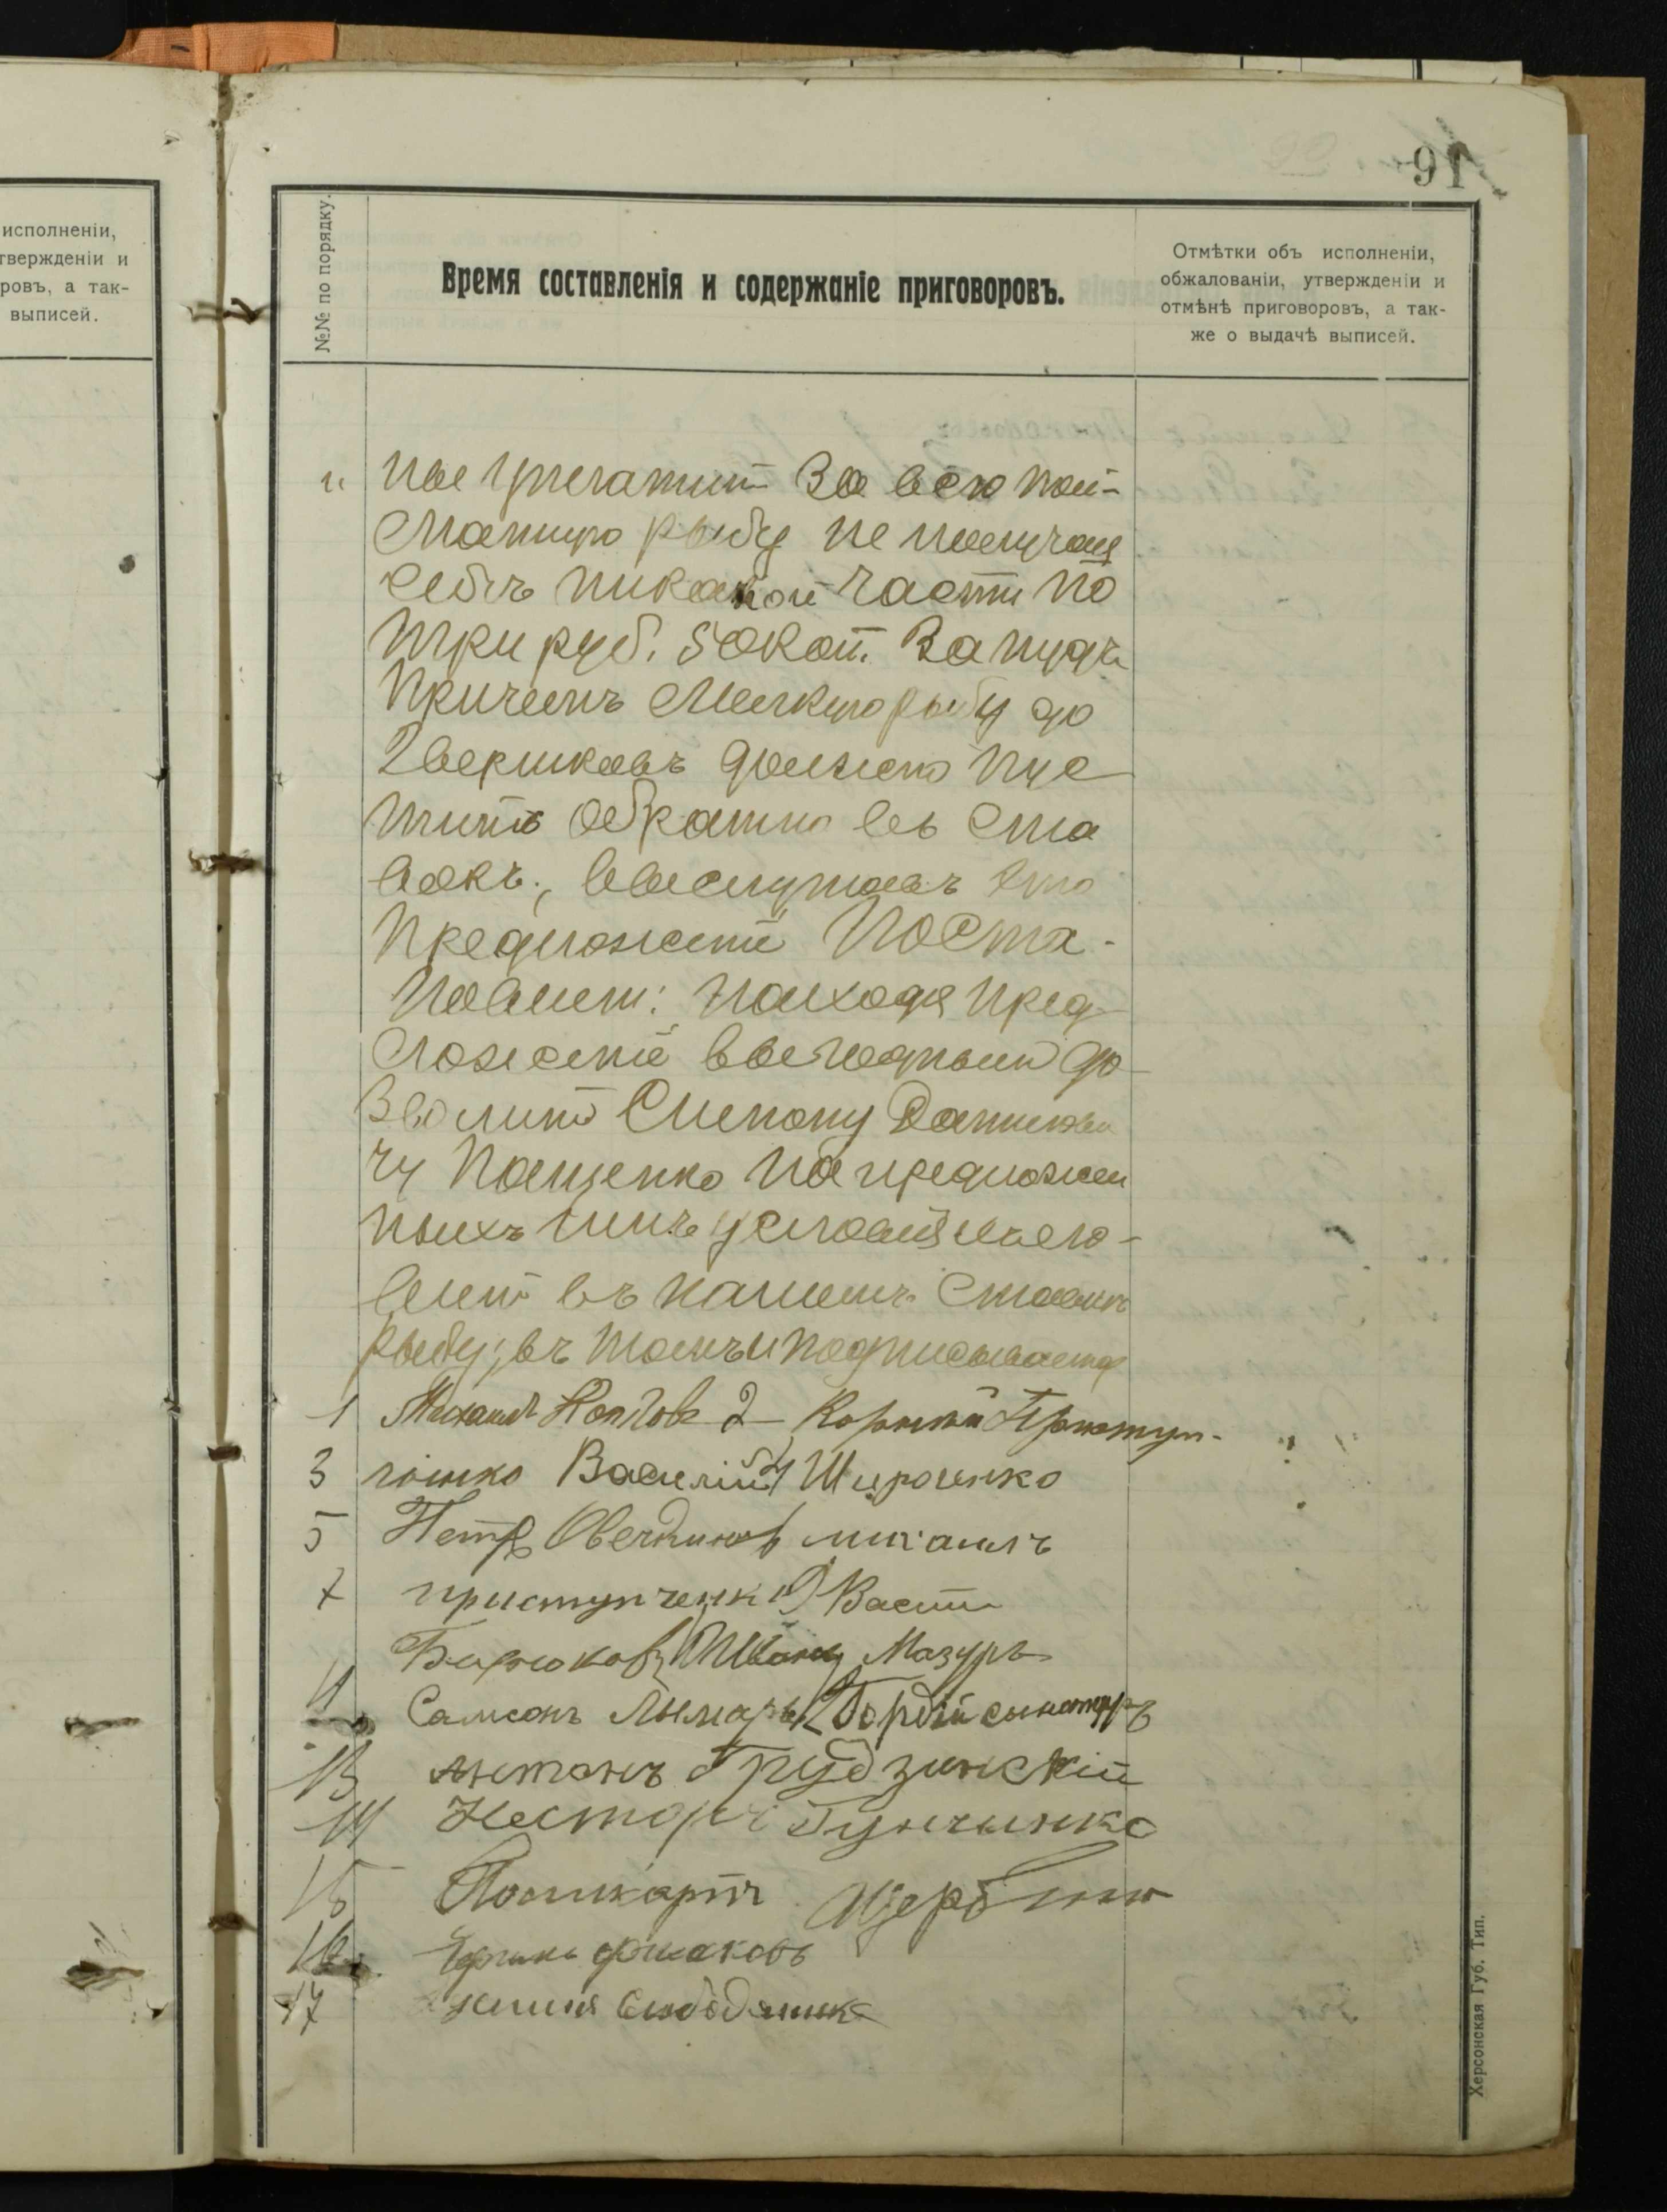 91
исполненіи,
твержденіи и
ровъ, а так-
выписей.
№№ по порядку.
Время составленія и содержаніе приговоровъ.
Отмѣтки объ исполненіи,
обжалованіи, утвержденіи и
отмѣнѣ приговоровъ, а так-
же о выдачѣ выписей.
за всю пой-
манную рыбу не получая
себѣ никакой части по
три руб. 50 коп. за пудъ
причемъ мелкую рыбу до
2 вершковъ должно пус
тить обратно въ ста
вокъ., выслушавъ это
предложеніе Поста-
новили: находя пред
ложеніе выгоднымъ до
зволить Данилови
чу Пащенко на предложен
ныхъ имъ условіяхъ выло-
вить въ нашемъ ставкѣ
рыбу; въ томъ и подписываемся
1 Михаилъ 2 Корнѣй Приступ-
3 ченко Василій 4 Широченко
5 Петръ Михаилъ
7 приступченко
Иванъ Мазуръ
11 Самсонъ Лымарь 12 Гордѣй
13 Антонъ Грудзинскій
14 Несторъ Гунченко
15 Поликарпъ Щерб
16
17 Слободяник
Херсонская Губ. Тип.